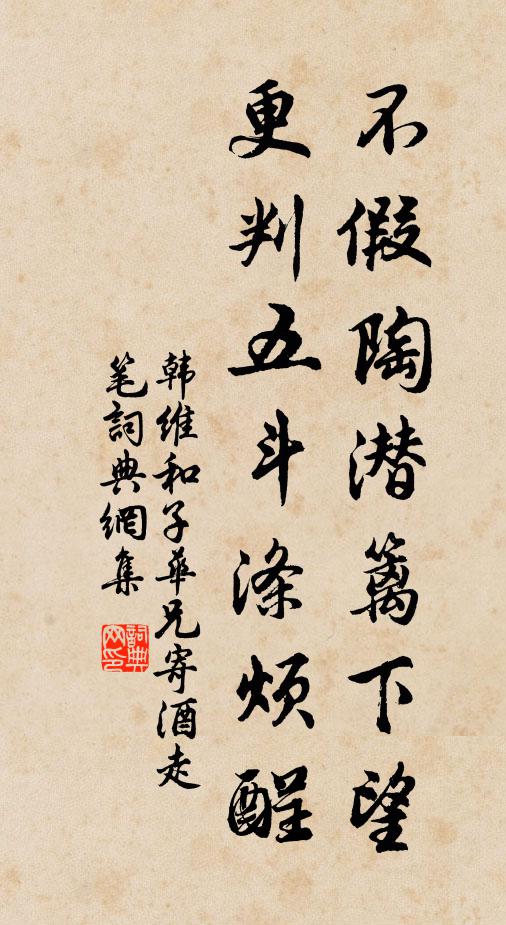 不假陶潜篱下望
更判五斗涤烦酲
韩维和子華兄寄酒走
笔詞典網集
詞典網印